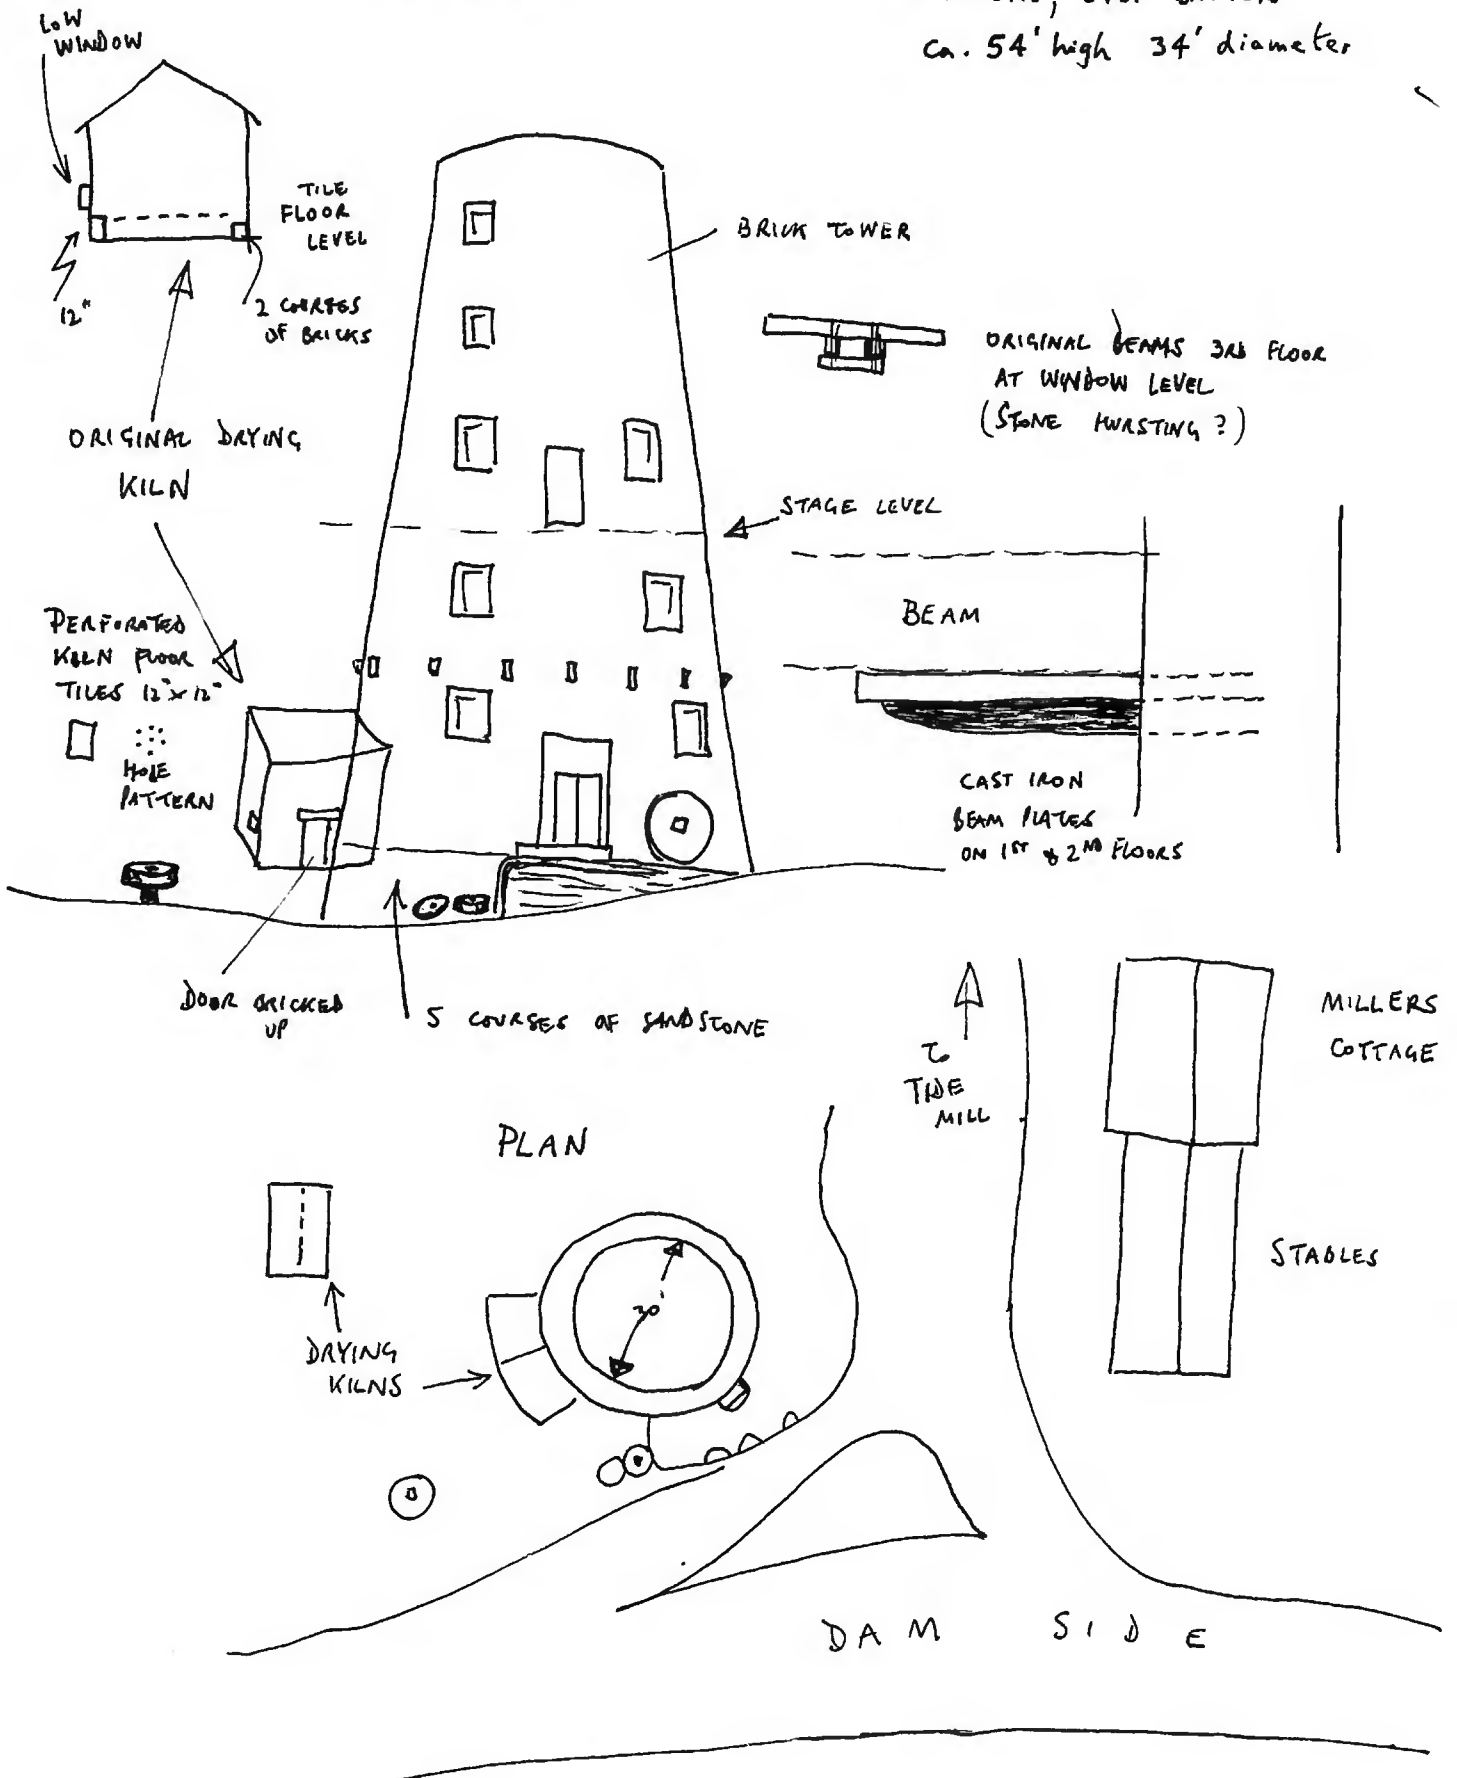 ca. 54' high 34' diameter
LOW
WINDOW
TILE
FLOOR
LEVEL
12"
2 COURSES
OF BRICKS
BRICK TOWER
ORIGINAL BEAMS 3RD FLOOR
AT WINDOW LEVEL
(STONE HURSTING?)
ORIGINAL DRYING
KILN
STAGE LEVEL
BEAM
PERFORATED
KILN FLOOR
TILES 12"x12"
HOLE
PATTERN
CAST IRON
BEAM PLATES
ON 1ST & 2ND FLOORS
DOOR BRICKED
UP
5 COURSES OF SANDSTONE
TO
TIDE
MILL
MILLERS
COTTAGE
PLAN
STABLES
DRYING
KILNS
DAM SIDE